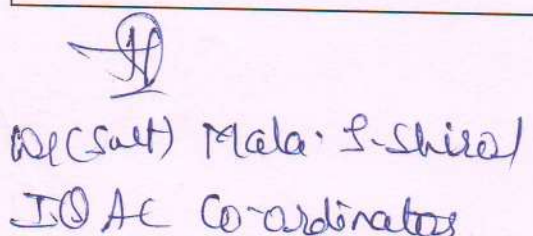 Dr(Smt) Mala. S. Shirol
IQAC Co-ordinator